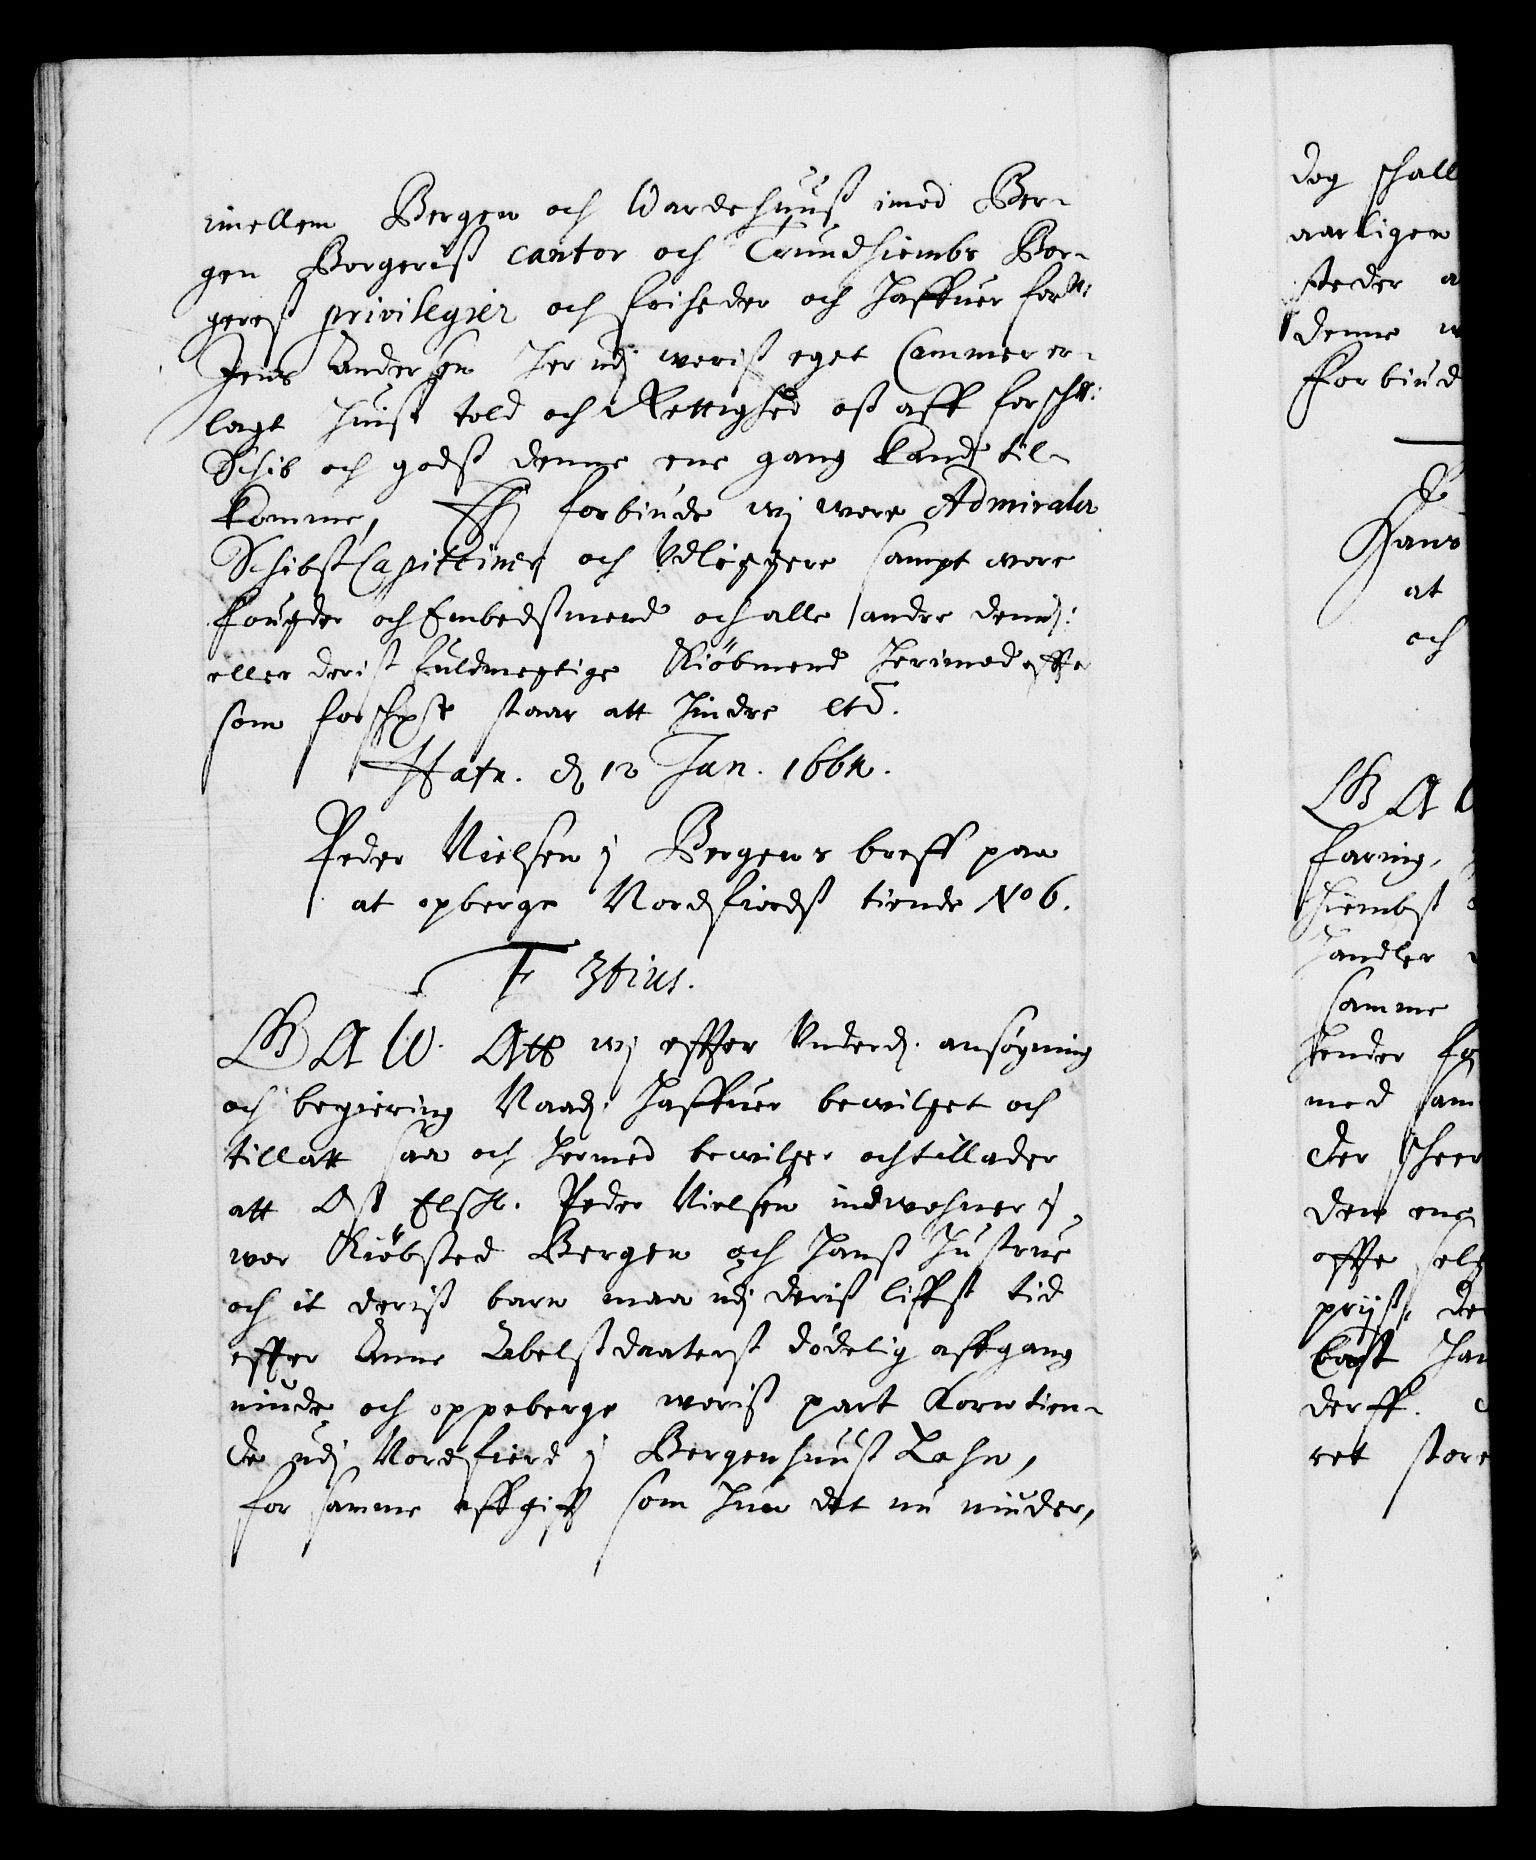 imellem Bergen och Wardehuuß imod Ber-
gen Borgeriß cantor och Trundhiembs Bor-
gereß privilegier och friheder och haffuer forne:
Jens Andersen her udj woriß eget Cammer er-
lagt huiß told och Rettighed oß aff forschr:
Schib och godß denne ene gang kand til-
komme, Thj forbiude wj wore Admiraler
SchibßCapitteiner och Udliggere sampt wore
fougder och Embedßmend och alle andre dennj:
eller deriß fuldmegtige Kiöbmend herimod effter
som forschr: staar att hindre etc.
Hafn. d 12 Jan. 1664.
Peder Nielsen j Bergens breff paa
at opberge Nordfiordß tiende No 6.
F 3tius.
G A W. Att wj effter Underd. ansögning
och begiering Naad: haffuer bewilget och
tilladt saa och hermed bewilger och tillader
att Oß Elschl. Peder Nielsen indwohner j
wor Kiöbsted Bergen och hanß hustrue
och it deriß barn maa udj deriß liffß tid
effter Anne Abelßdaaterß dödelig affgang
niude och oppeberge woriß part Korntien-
de udj Nordfiord j Bergenhuuß Lehn,
for samme affgifft som hun det nu niuder,
dog schall
aarligen
steder
denne
forbiud
Hans
at
och
G A
faring,
hiembß
handler
samme
hender
med sam
der scheer
den ene
effter
prijß, de
Coß
derff.
ret store